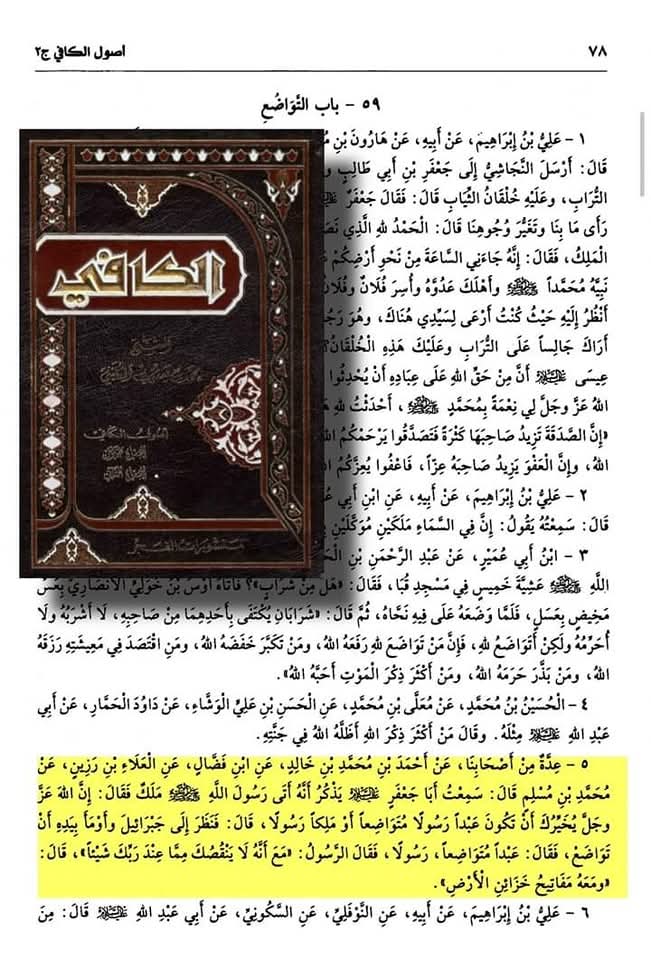 أصول الكافي ج٢
٧٨
٥٩ - باب التَّوَاضُعِ
١ - عَلِيُّ بْنُ إِبْرَاهِيمَ، عَنْ أَبِيهِ، عَنْ هَارُونَ بْنِ
قَالَ: أَرْسَلَ النَّجَاشِيُّ إِلَى جَعْفَرِ بْنِ أَبِي طَالِبٍ
التُّرَابِ، وَعَلَيْهِ خُلْقَانُ الثِّيَابِ قَالَ: فَقَالَ جَعْفَرٌ عليه السلام
رَأَى مَا بِنَا وَتَغَيُّرَ وُجُوهِنَا قَالَ: الْحَمْدُ لِلهِ الَّذِي
الْمَلِكُ، فَقَالَ: إِنَّهُ جَاءَنِي السَّاعَةَ مِنْ نَحْوِ أَرْضِكُمْ
نَبِيَّهُ مُحَمَّداً ﷺ وَأَهْلَكَ عَدُوَّهُ وَأُسِرَ فُلَانٌ وَفُلَانٌ
أَنْظُرُ إِلَيْهِ حَيْثُ كُنْتُ أَرْعَى لِسَيِّدِي هُنَاكَ، وَهُوَ
أَرَاكَ جَالِساً عَلَى التُّرَابِ وَعَلَيْكَ هَذِهِ الْخُلْقَانُ؟
عِيسَى عليه السلام أَنَّ مِنْ حَقِّ اللهِ عَلَى عِبَادِهِ أَنْ يُحْدِثُوا
اللهُ عَزَّ وَجَلَّ لِي نِعْمَةً بِمُحَمَّدٍ ﷺ، أَحْدَثْتُ لِلهِ
«إِنَّ الصَّدَقَةَ تَزِيدُ صَاحِبَهَا كَثْرَةً فَتَصَدَّقُوا يَرْحَمْكُمُ
اللهُ، وَإِنَّ الْعَفْوَ يَزِيدُ صَاحِبَهُ عِزّاً، فَاعْفُوا يُعِزَّكُمُ
٢ - عَلِيُّ بْنُ إِبْرَاهِيمَ، عَنْ أَبِيهِ، عَنِ ابْنِ أَبِي
قَالَ: سَمِعْتُهُ يَقُولُ: إِنَّ فِي السَّمَاءِ مَلَكَيْنِ مُوَكَّلَيْنِ
٣ - ابْنُ أَبِي عُمَيْرٍ، عَنْ عَبْدِ الرَّحْمَنِ بْنِ
اللهِ ﷺ عَشِيَّةَ خَمِيسٍ فِي مَسْجِدِ قُبَا، فَقَالَ: «هَلْ مِنْ شَرَابٍ»؟ فَأَتَاهُ أَوْسُ بْنُ خَوْلِيٍّ الْأَنْصَارِيُّ بِعُسِّ
مَخِيضٍ بِعَسَلٍ، فَلَمَّا وَضَعَهُ عَلَى فِيهِ نَحَّاهُ، ثُمَّ قَالَ: «شَرَابَانِ يُكْتَفَى بِأَحَدِهِمَا مِنْ صَاحِبِهِ، لَا أَشْرَبُهُ وَلَا
أُحَرِّمُهُ وَلَكِنْ أَتَوَاضَعُ لِلهِ، فَإِنَّ مَنْ تَوَاضَعَ لِلهِ رَفَعَهُ اللهُ، وَمَنْ تَكَبَّرَ خَفَضَهُ اللهُ، وَمَنِ اقْتَصَدَ فِي مَعِيشَتِهِ رَزَقَهُ
اللهُ، وَمَنْ بَذَّرَ حَرَمَهُ اللهُ، وَمَنْ أَكْثَرَ ذِكْرَ الْمَوْتِ أَحَبَّهُ اللهُ».
٤ - الْحُسَيْنُ بْنُ مُحَمَّدٍ، عَنْ مُعَلَّى بْنِ مُحَمَّدٍ، عَنِ الْحَسَنِ بْنِ عَلِيٍّ الْوَشَّاءِ، عَنْ دَاوُدَ الْحَمَّارِ، عَنْ أَبِي
عَبْدِ اللهِ عليه السلام مِثْلَهُ. وَقَالَ مَنْ أَكْثَرَ ذِكْرَ اللهِ أَظَلَّهُ اللهُ فِي جَنَّتِهِ.
٥ - عِدَّةٌ مِنْ أَصْحَابِنَا، عَنْ أَحْمَدَ بْنِ مُحَمَّدِ بْنِ خَالِدٍ، عَنِ ابْنِ فَضَّالٍ، عَنِ الْعَلَاءِ بْنِ رَزِينٍ، عَنْ
مُحَمَّدِ بْنِ مُسْلِمٍ قَالَ: سَمِعْتُ أَبَا جَعْفَرٍ عليه السلام يَذْكُرُ أَنَّهُ أَتَى رَسُولَ اللهِ ﷺ مَلَكٌ فَقَالَ: إِنَّ اللهَ عَزَّ
وَجَلَّ يُخَيِّرُكَ أَنْ تَكُونَ عَبْداً رَسُولًا مُتَوَاضِعاً أَوْ مَلِكاً رَسُولًا، قَالَ: فَنَظَرَ إِلَى جَبْرَائِيلَ وَأَوْمَأَ بِيَدِهِ أَنْ
تَوَاضَعْ، فَقَالَ: عَبْداً مُتَوَاضِعاً، رَسُولًا، فَقَالَ الرَّسُولُ: «مَعَ أَنَّهُ لَا يَنْقُصُكَ مِمَّا عِنْدَ رَبِّكَ شَيْئاً»، قَالَ:
«وَمَعَهُ مَفَاتِيحُ خَزَائِنِ الْأَرْضِ».
٦ - عَلِيُّ بْنُ إِبْرَاهِيمَ، عَنْ أَبِيهِ، عَنِ النَّوْفَلِيِّ، عَنِ السَّكُونِيِّ، عَنْ أَبِي عَبْدِ اللهِ عليه السلام قَالَ: مِنَ
الكافي
منشورات الفجر